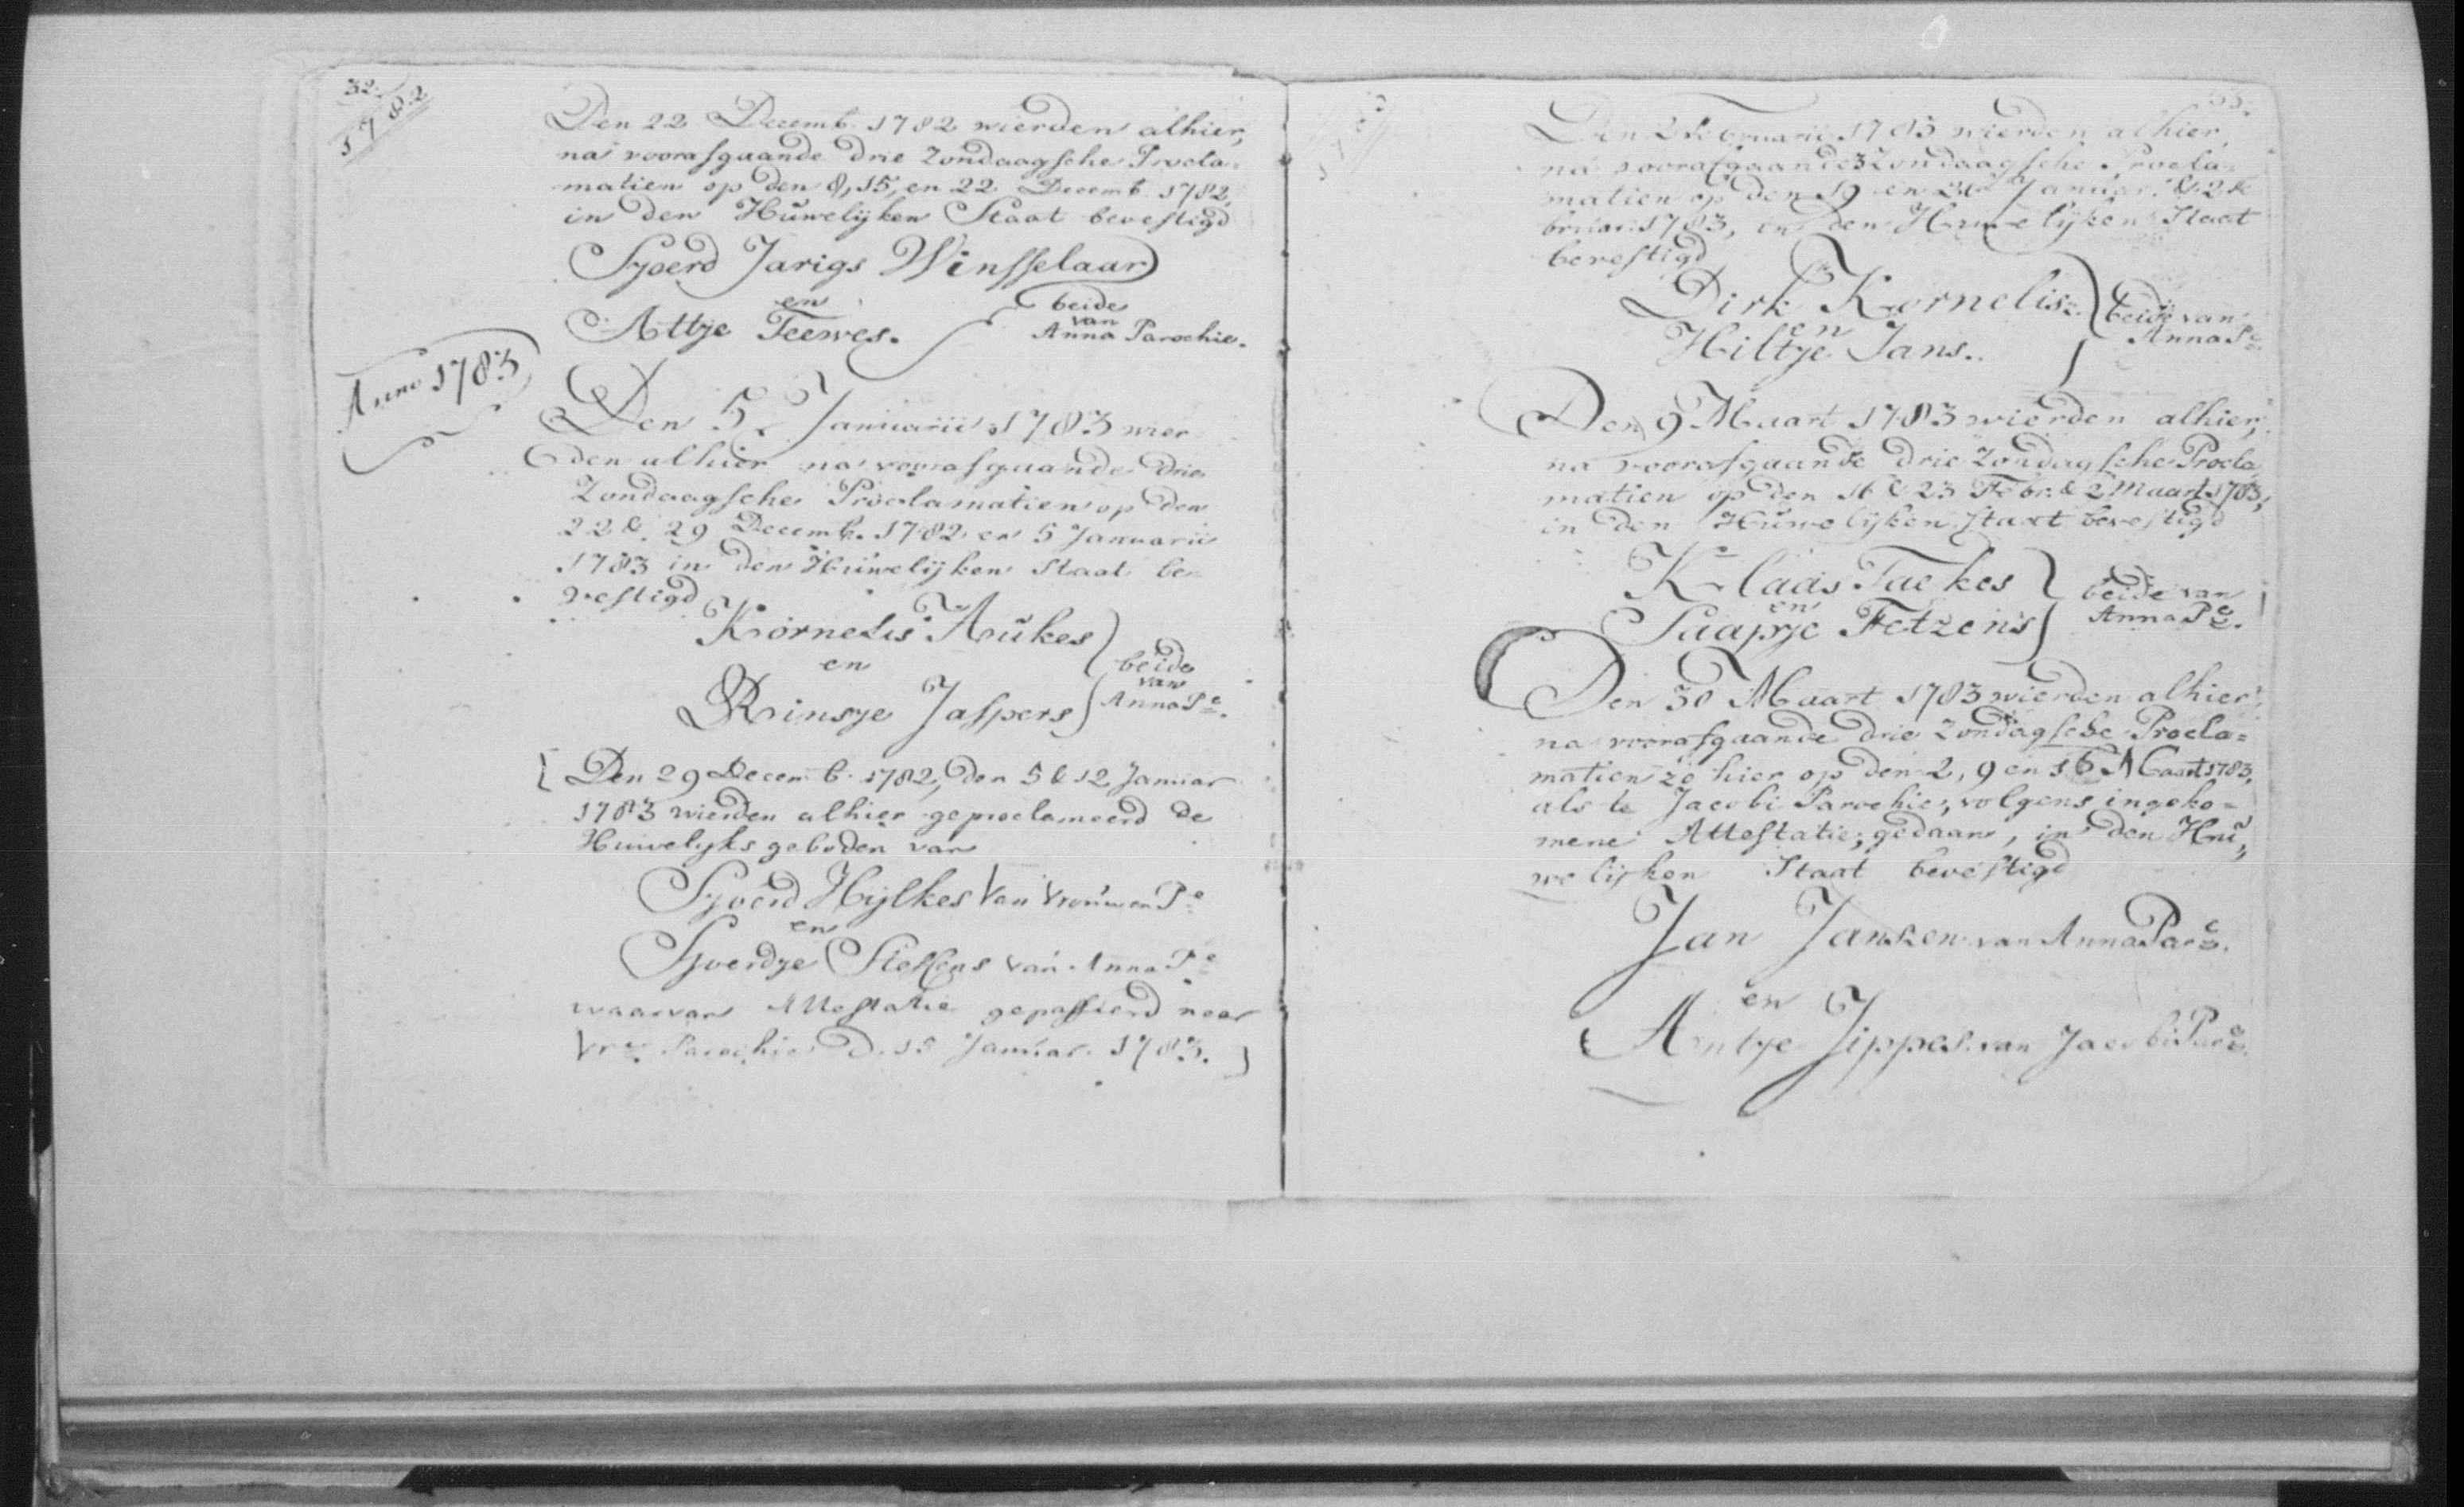 32.
1782
Den 22 Decemb. 1782 wierden alhier,
na voorafgaande drie Zondaagsche Procla=
matien op den 8, 15, en 22 Decemb. 1782,
in den Huwelijken Staat bevestigd
Sjoerd Jarigs Winsselaar
en
Attje Teewes.
beide
van
Anna Parochie.
Anno 1783
Den 5 Januarii 1783 wier
den alhier na voorafgaande drie
Zondaagsche Proclamatien op den
22 & 29 Decemb. 1782 en 5 Januarii
1783 in den Huwelijken Staat be
vestigd
Kornelis Aukes
en
Rinsje Jaspers
beide
van
Anna Pe.
[Den 29 Decemb. 1782, den 5 & 12 Januar
1783 wierden alhier geproclameerd de
Huwelyks geboden van
Sjoerd Hylkes van Vrouwen Pe
en
Sjoerdje van Anna Pe
waarvan Attestatie gepasseerd naar
Vre. Parochie D. Januar. 1783.]
33.
Den 2 Februarii 1783 wierden alhier,
na voorafgaande 3 Zondaagsche Procla=
matien op den 19 en 26 Januar. & 2 Fe
bruar. 1783, in den Huwelijken Staat
bevestigd
Dirk Kornelisz.
en
Hiltje Jans.
beide van
Anna Pe.
Den 9 Maart 1783 wierden alhier,
na voorafgaande drie Zondagsche Procla
matien op den 16 & 23 Febr. & 2 Maart 1783,
in den Huwelijken staat bevestigd
Klaas Taekes
en
Saapje Fetzens
beide van
Anna Pe.
Den 30 Maart 1783 wierden alhier,
na voorafgaande drie Zondagsche Procla=
matien zo hier op den 2, 9 en 16 Maart 1783,
als te Jacobi Parochie, volgens ingeko=
mene Attestatie, gedaan, in den Hu
welijken Staat bevestigd
Jan Jansen van Anna Pare.
en
Antje Jippes van Jacobi Pare.